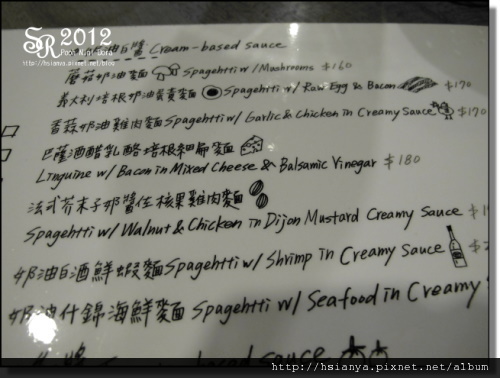 SR 2012
Pooh Nini Dora
http://hsianya.pixnet.net/blog
油白醬 Cream-based sauce
蘑菇奶油麵 Spagehtti w/Mushrooms $160
義大利培根奶油蛋黃麵 Spagehtti w/ Raw Egg & Bacon $170
香蒜奶油雞肉麵 Spagehtti w/ Garlic & Chicken in Creamy Sauce $170
巴薩酒醋乳酪培根細扁麵
Linguine w/ Bacon in Mixed Cheese & Balsamic Vinegar $180
法式芥末子奶醬佐核果雞肉麵
Spagehtti w/ Walnut & Chicken in Dijon Mustard Creamy Sauce $1
奶油白酒鮮蝦麵 Spagehtti w/ Shrimp in Creamy Sauce $2
奶油什錦海鮮麵 Spagehtti w/ Seafood in Creamy S
醬 based sauce
http://hsianya.pixnet.net/album